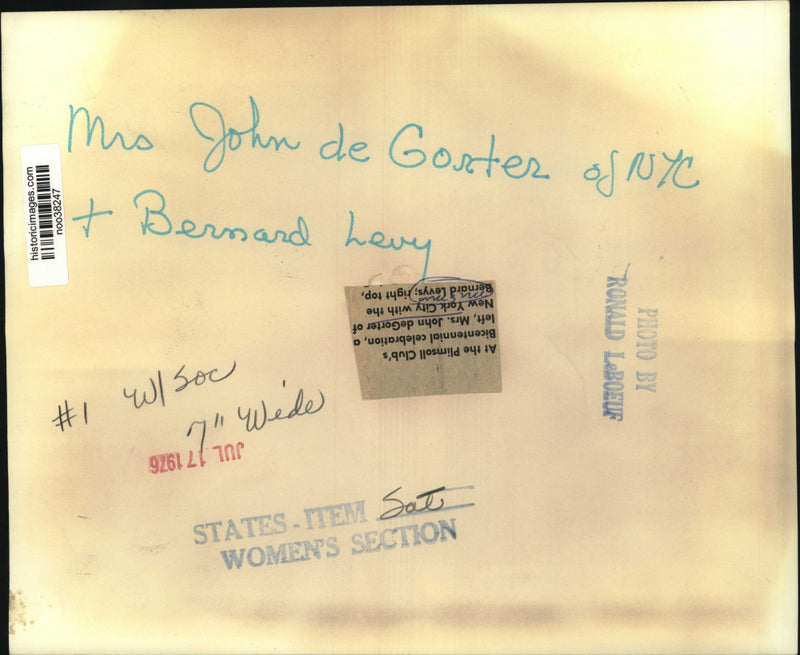 Mrs John de Gorter of NYC
+ Bernard Levy
historicimages.com
noo38247
At the Plimsoll Club's
Bicentennial celebration, a
left, Mrs. John deGorter of
New York City with the
Bernard Levys; right top,
PHOTO BY
RONALD LeBOEUF
#1 W/ Soc
7" Wide
JUL 17 1976
STATES-ITEM Sat
WOMEN'S SECTION